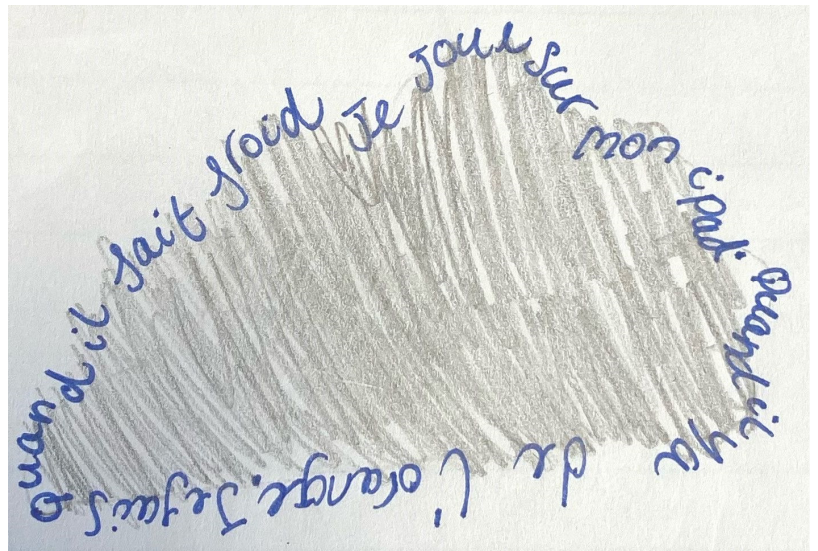 Quand il fait froid Je Joue sur mon ipad. Quand il ya de l'orange. Je fais